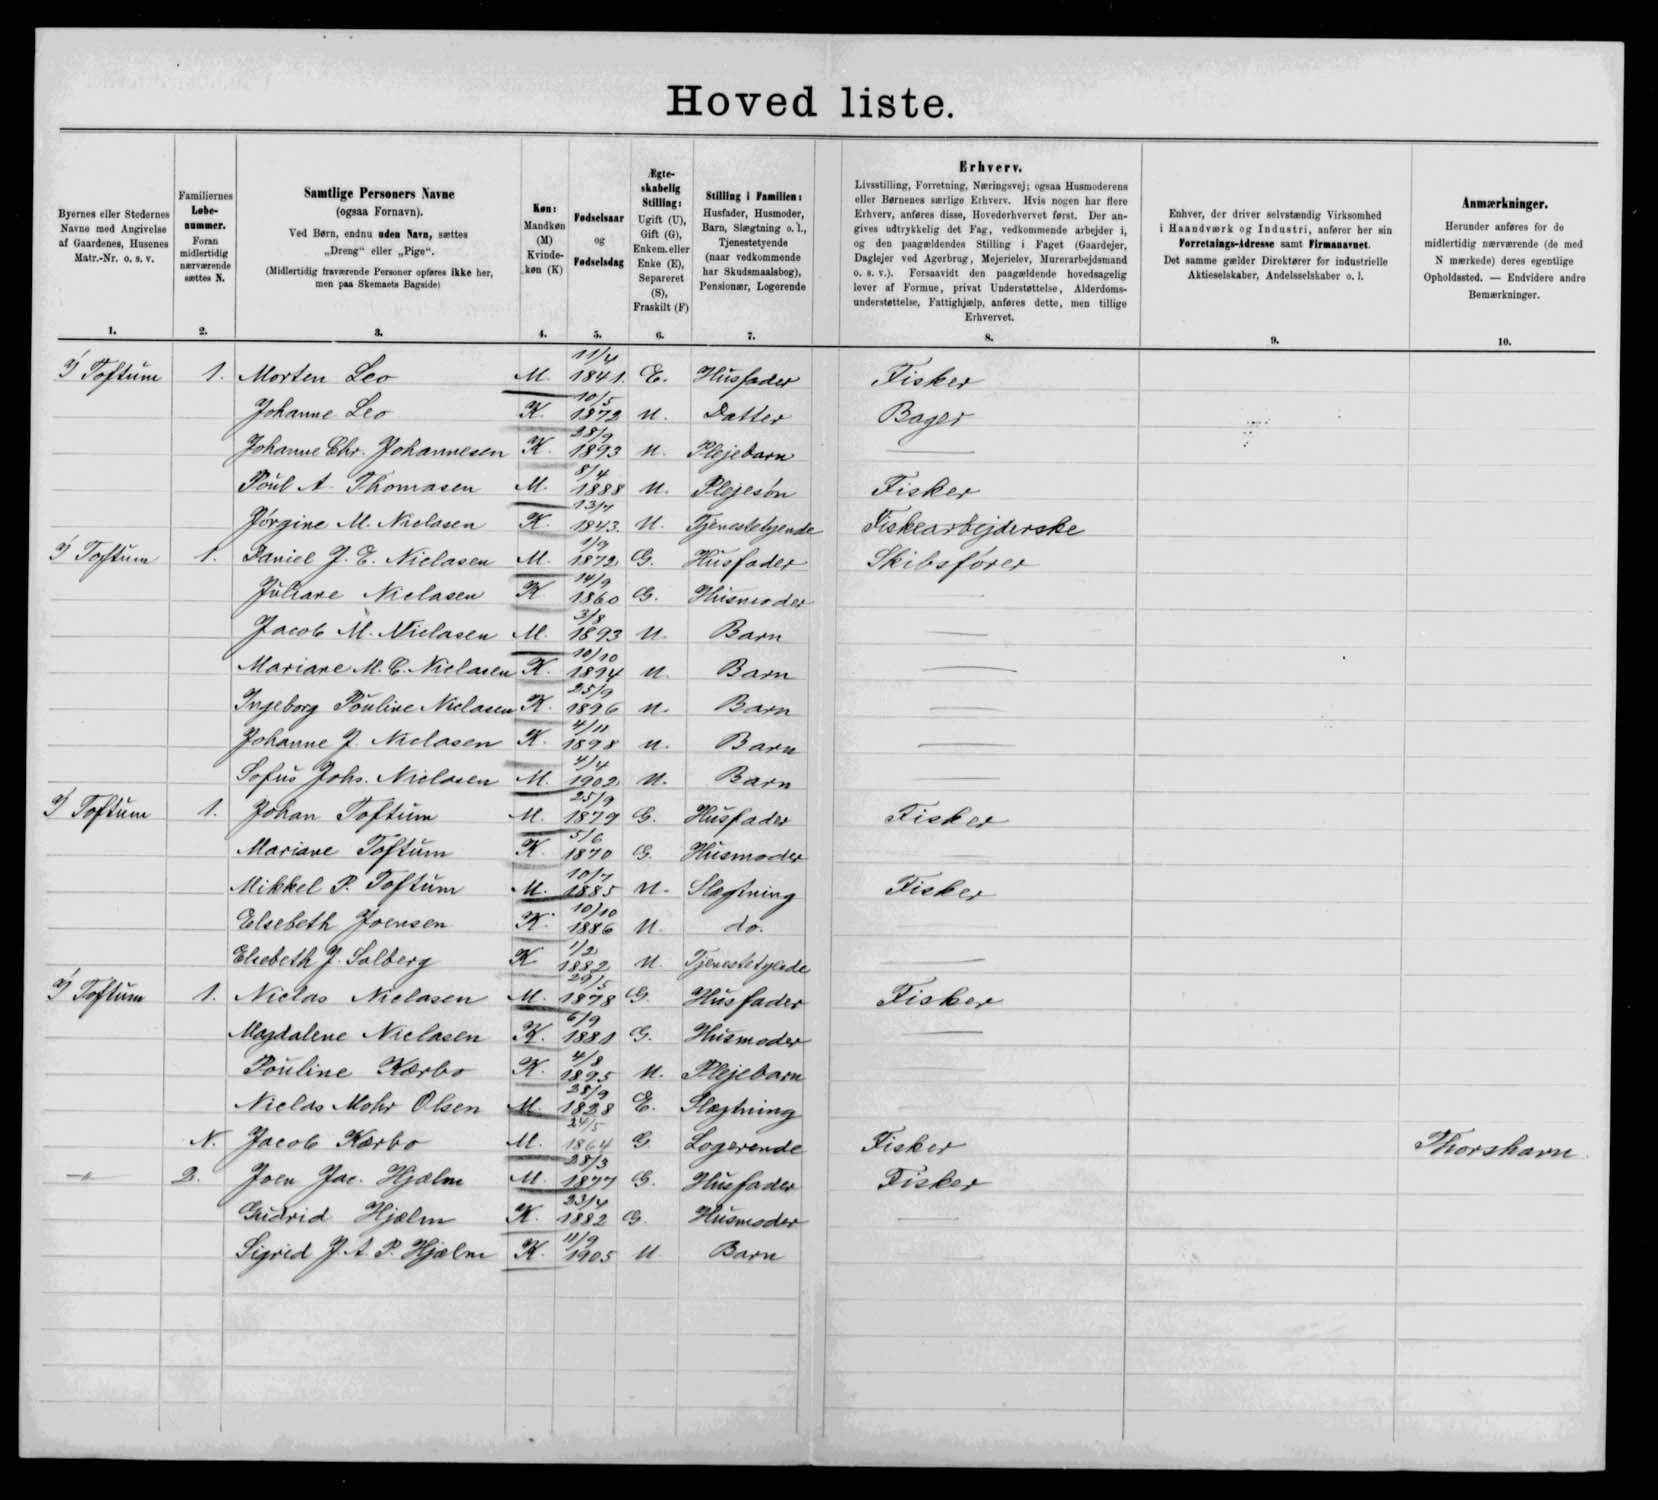 Hoved liste.
Byernes eller Stedernes Navne med Angivelse af Gaardenes, Husenes Matr.-Nr. o. s. v.
Familiernes Løbe-nummer. Foran midlertidig nærværende sættes N.
Samtlige Personers Navne (ogsaa Fornavn). Ved Børn, endnu uden Navn, sættes „Dreng“ eller „Pige“. (Midlertidig fraværende Personer opføres ikke her, men paa Skemaets Bagside)
Køn: Mandkøn (M) Kvinde-køn (K)
Fødselsaar og Fødselsdag
Ægte-skabelig Stilling: Ugift (U), Gift (G), Enkem. eller Enke (E), Separeret (S), Fraskilt (F)
Stilling i Familien: Husfader, Husmoder, Barn, Slægtning o. l., Tjenestetyende (naar vedkommende har Skudsmaalsbog), Pensionær, Logerende
Erhverv. Livsstilling, Forretning, Næringsvej; ogsaa Husmoderens eller Børnenes særlige Erhverv. Hvis nogen har flere Erhverv, anføres disse, Hovederhvervet først. Der angives udtrykkelig det Fag, vedkommende arbejder i, og den paagældendes Stilling i Faget (Gaardejer, Daglejer ved Agerbrug, Mejerielev, Murerarbejdsmand o. s. v.). Forsaavidt den paagældende hovedsagelig lever af Formue, privat Understøttelse, Alderdoms-understøttelse, Fattighjælp, anføres dette, men tillige Erhvervet.
Enhver, der driver selvstændig Virksomhed i Haandværk og Industri, anfører her sin Forretnings-Adresse samt Firmanavnet. Det samme gælder Direktører for industrielle Aktieselskaber, Andelsselskaber o. l.
Anmærkninger. Herunder anføres for de midlertidig nærværende (de med N mærkede) deres egentlige Opholdssted. — Endvidere andre Bemærkninger.
1. 2. 3. 4. 5. 6. 7. 8. 9. 10.
I Toftum 1. Morten Leo M. 11/4 1841. E. Husfader Fisker
Johanne Leo K. 10/5 1872 U. Datter Bager
Johanne Chr. Johannesen K. 28/9 1893 U. Plejebarn —
Poul A. Thomasen M. 8/4 1888 U. Plejesøn Fisker
Jørgine M. Niclasen K. 13/7 1843. U. Tjenestetyende Fiskearbejderske
I Toftum 1. Daniel J. E. Niclasen M. 1/9 1872 G. Husfader Skibsfører
Juliane Niclasen K 14/9 1860 G. Husmoder —
Jacob M. Niclasen M. 3/8 1893 U. Barn —
Mariane M. C. Niclasen K. 10/10 1894 U. Barn —
Ingeborg Pouline Niclasen K. 25/9 1896 U. Barn —
Johanne J. Niclasen K. 4/11 1898 U. Barn —
Sofus Johs. Niclasen M. 4/4 1902 U. Barn —
I Toftum 1. Johan Toftum M. 25/9 1879 G. Husfader Fisker
Mariane Toftum K. 5/6 1870 G. Husmoder —
Mikkel P. Toftum M. 10/7 1885 U. Slægtning Fisker
Elsebeth Joensen K. 10/10 1886 U. do. —
Elsebeth J. Solberg K 1/2 1882 U. Tjenestetyede —
I Toftum 1. Niclas Niclasen M. 29/5 1878 G. Husfader Fisker
Magdalene Niclasen K. 6/9 1881 G. Husmoder —
Pouline Kærbo K. 4/8 1895 U. Plejebarn —
Niclas Mohr Olsen M. 28/9 1828 E. Slægtning —
N. Jacob Kærbo M. 24/5 1864 G Logerende Fisker Thorshavn.
—"— 2. Joen Jac. Hjælm M. 28/3 1877 G. Husfader Fisker
Gudrid Hjælm K. 23/4 1882 G. Husmoder —
Sigrid J. A. P. Hjælm K. 11/9 1905 U. Barn